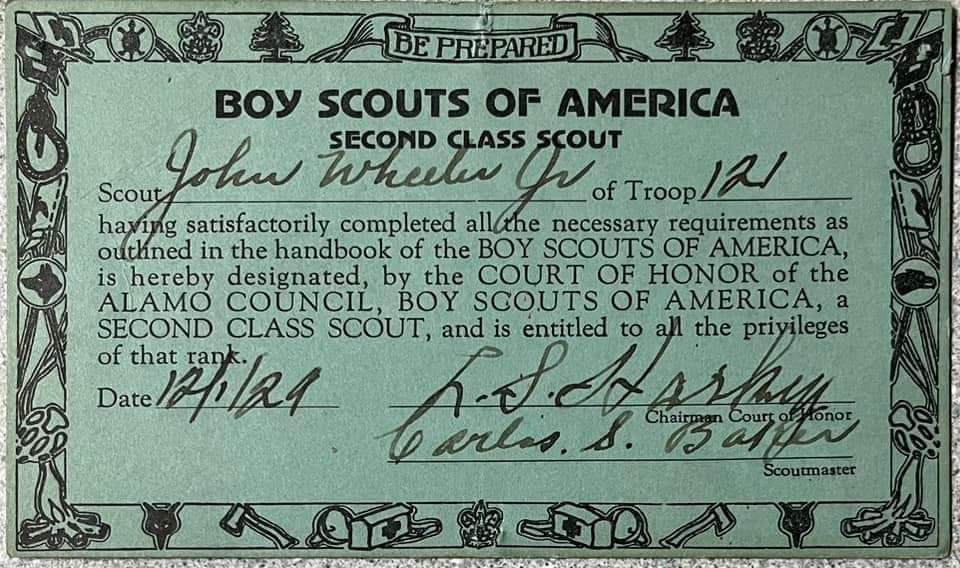 BE PREPARED
BOY SCOUTS OF AMERICA
SECOND CLASS SCOUT
Scout John Wheeler Jr of Troop 121
having satisfactorily completed all the necessary requirements as
outlined in the handbook of the BOY SCOUTS OF AMERICA,
is hereby designated, by the COURT OF HONOR of the
ALAMO COUNCIL, BOY SCOUTS OF AMERICA, a
SECOND CLASS SCOUT, and is entitled to all the privileges
of that rank.
Date 12/1/29 L. S. Harkey
Chairman Court of Honor
Carlos. S. Baker
Scoutmaster